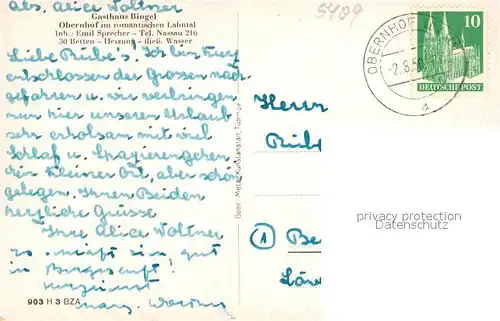 Abs. Alice Woltner
Gasthaus Bingel
Obernhof im romantischen Lahntal
Inh: Emil Sprecher - Tel. Nassau 216
30 Betten - Heizung - fließ. Wasser
Liebe Rübe's! Ich bin kurz
entschlossen der Grossen nach
gefahren u. wir verbringen
nun hier unseren Urlaub
sehr erholsam mit viel
Schlaf u. Spazierengehen
ein kleiner Ort, aber schön
gelegen. Ihnen Beiden
herzliche Grüsse
Ihre Alice Woltner
gut
903 H 3 BZA
Gebr. Metz, Kunstanstalt, Tübingen
5409
OBERNHOF
-2.8.5
a
10
DEUTSCHE POST
Herrn
Rübe
1 Be
privacy protection